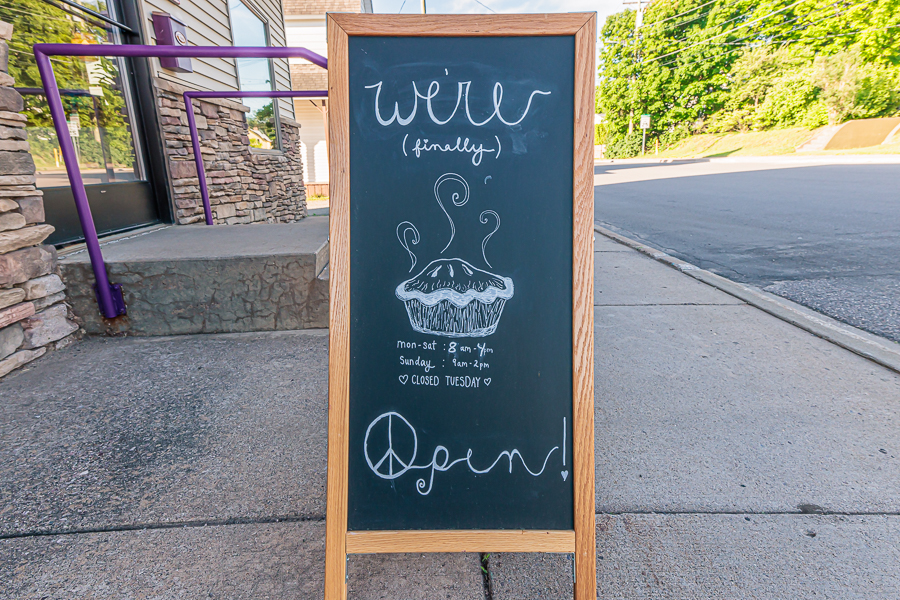 we're
(finally)
mon-sat : 8am-4pm
Sunday : 9am-2pm
♡ CLOSED TUESDAY ♡
Open!